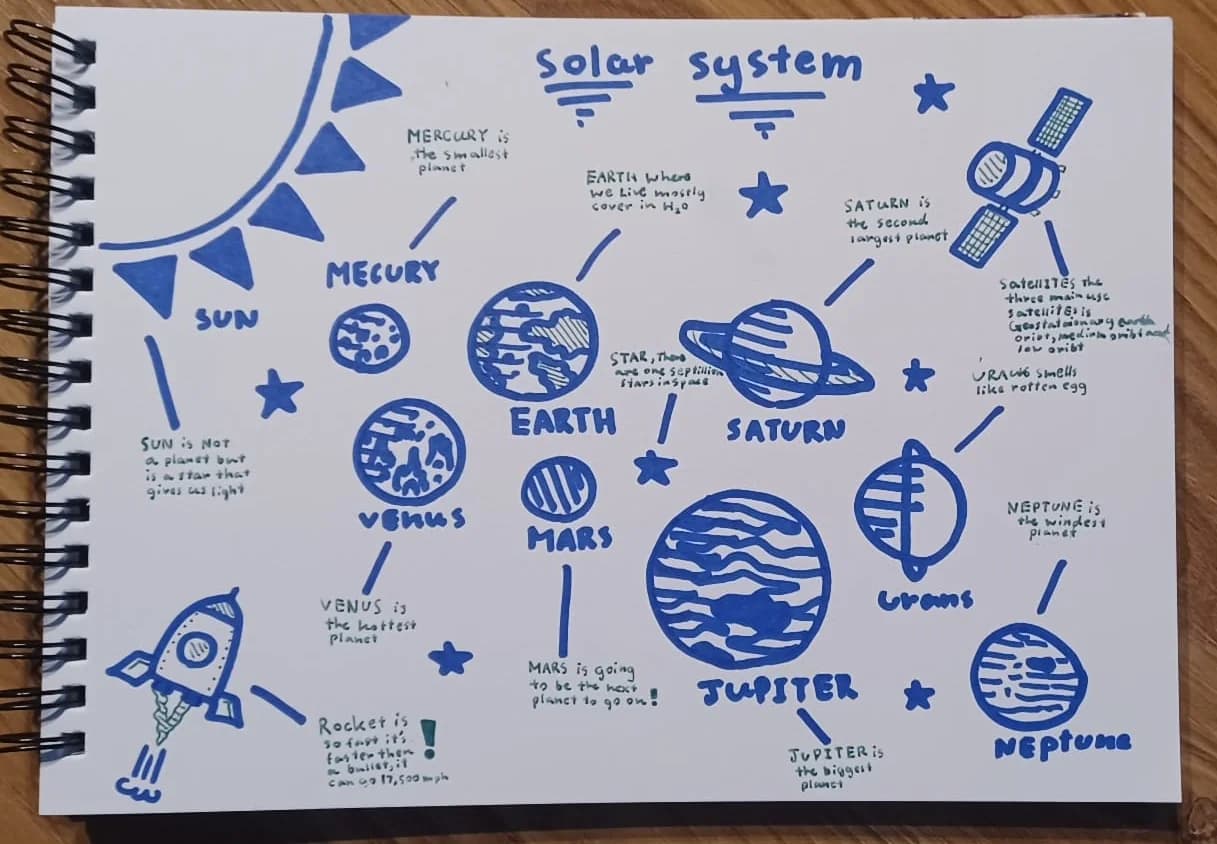 Solar system
MERCURY is
the smallest
planet
EARTH where
we Live mostly
cover in H₂O
SATURN is
the second
largest planet
MECURY
SUN
Satellites the
three main use
satellites is
Geostationary earth
oribt, medium oribt and
low oribt
STAR, There
are one septillion
stars in space
URAUS smells
like rotten egg
EARTH
SATURN
SUN is NOT
a planet but
is a star that
gives us light
VENUS
MARS
NEPTUNE is
the windest
planet
Urans
VENUS is
the hottest
planet
MARS is going
to be the next
planet to go on!
JUPITER
Neptune
Rocket is
so fast it's
faster then
a bullet, it
can go 17,500 mph
!
JUPITER is
the biggest
planet